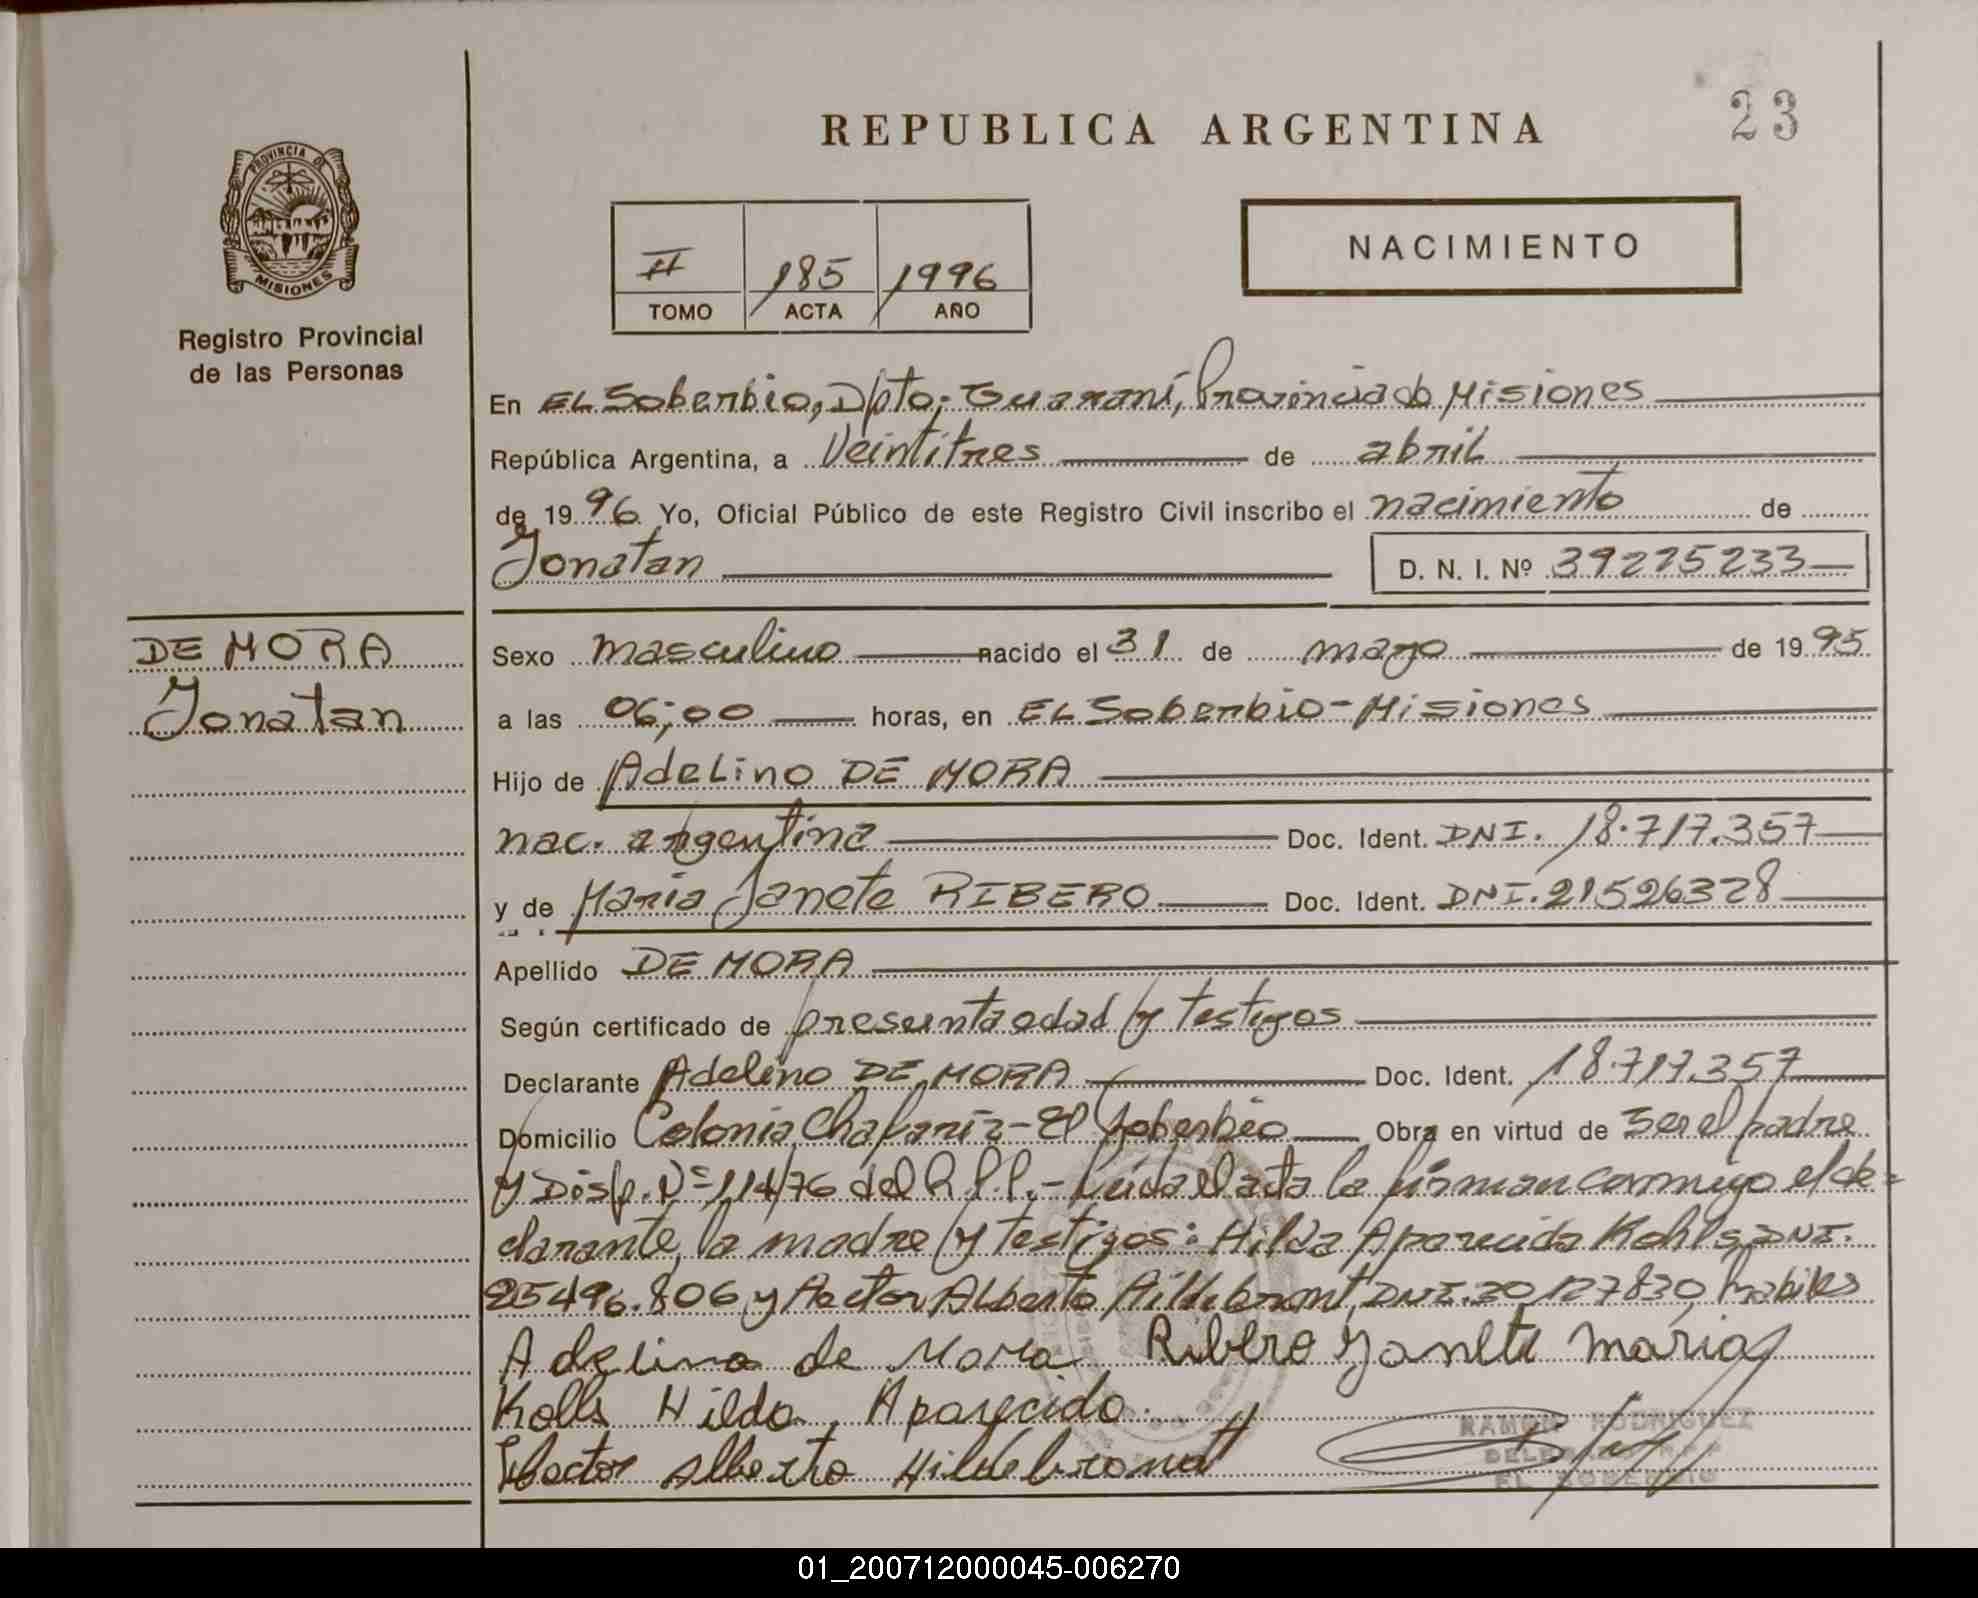 REPUBLICA ARGENTINA
23
PROVINCIA DE
MISIONES
Registro Provincial
de las Personas
II 185 1996
TOMO ACTA AÑO
NACIMIENTO
En EL Soberbio, Dpto; Guaraní, Provincia de Misiones
República Argentina, a Veintitres de abril
de 1996 Yo, Oficial Público de este Registro Civil inscribo el nacimiento de
Jonatan D. N. I. Nº 39225233
DE MORA
Jonatan
Sexo masculino nacido el 31 de mayo de 1995
a las 06;00 horas, en EL Soberbio-Misiones
Hijo de Adelino DE MORA
nac. argentina Doc. Ident. DNI. 18.717.357
y de Maria Janete RIBERO Doc. Ident. DNI. 21526328
Apellido DE MORA
Según certificado de presunta edad y testigos
Declarante Adelino DE MORA Doc. Ident. 18.717.357
Domicilio Colonia Chafariz - El Soberbio Obra en virtud de ser el padre
y Disp. Nº 114/76 del R.P.P.- Leida el acta la firman conmigo el de=
clarante, la madre y testigos: Hilda Aparecida Kohls DNI.
25496.806 y Hector Alberto Hildebrant, DNI. 20.127830, habiles
Adelino de Mora Ribero Janete Maria
Kolls Hilda Aparecida
Hector Alberto Hildebrandt
RAMON RODRIGUEZ
EL SOBERBIO
01_200712000045-006270